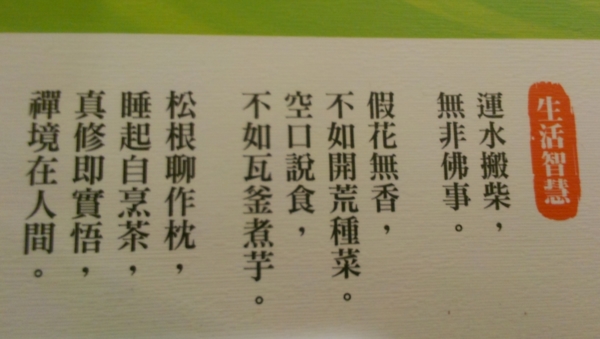 生活智慧
運水搬柴，
無非佛事。
假花無香，
不如開荒種菜。
空口說食，
不如瓦釜煮芋。
松根聊作枕，
睡起自烹茶，
真修即實悟，
禪境在人間。